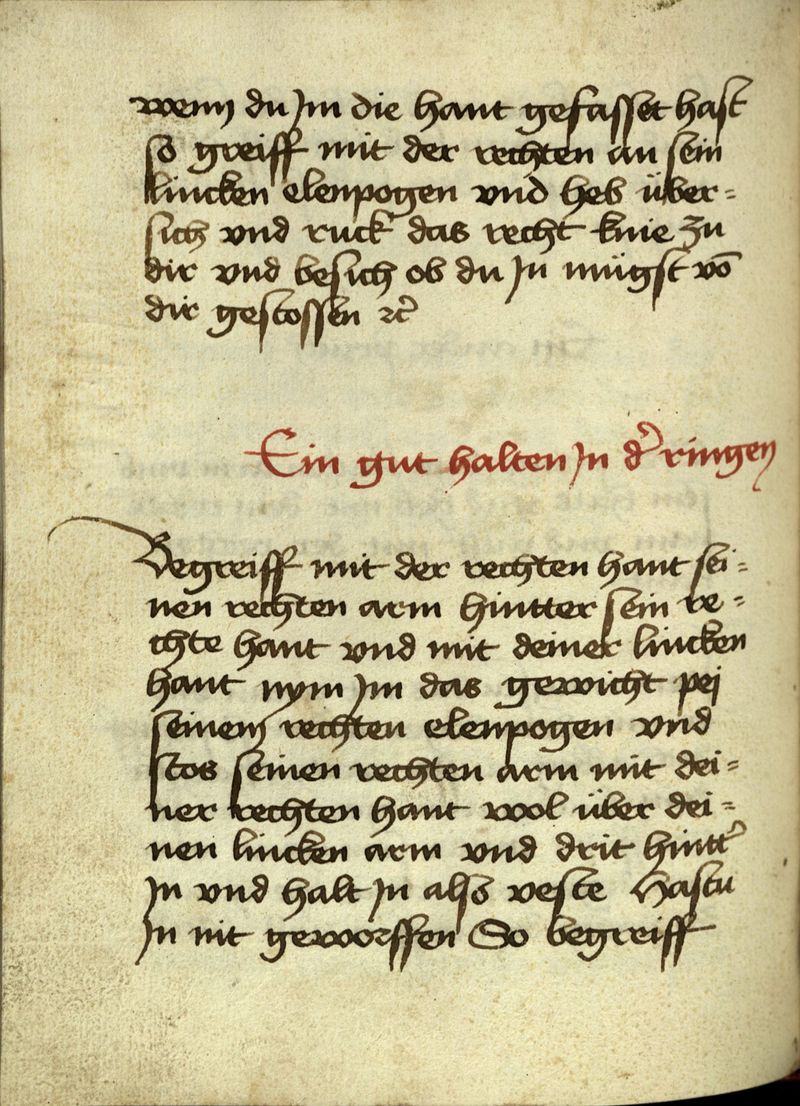 wenn du Jm die hant gefasset hast
so greiff mit der rechten an sein
lincken elenpogen vnd heb über=
sich vnd ruck das recht knie zu
dir vnd besich ob du Jn mügst vō
dir gestossen ꝛc̄
Ein gut halten Jn d̕ ringen
Begreiff mit der rechten hant sei=
nen rechten arm hintter sein re=
chte hant vnd mit deiner lincken
hant nym Jm das gewicht pej
seinem rechten elenpogen vnd
stos seinen rechten arm mit dei=
ner rechten hant wol über dei=
nen lincken arm vnd drit hintt̕
Jn vnd halt Jn also veste Hastu
Jn nit geworffen So begreiff